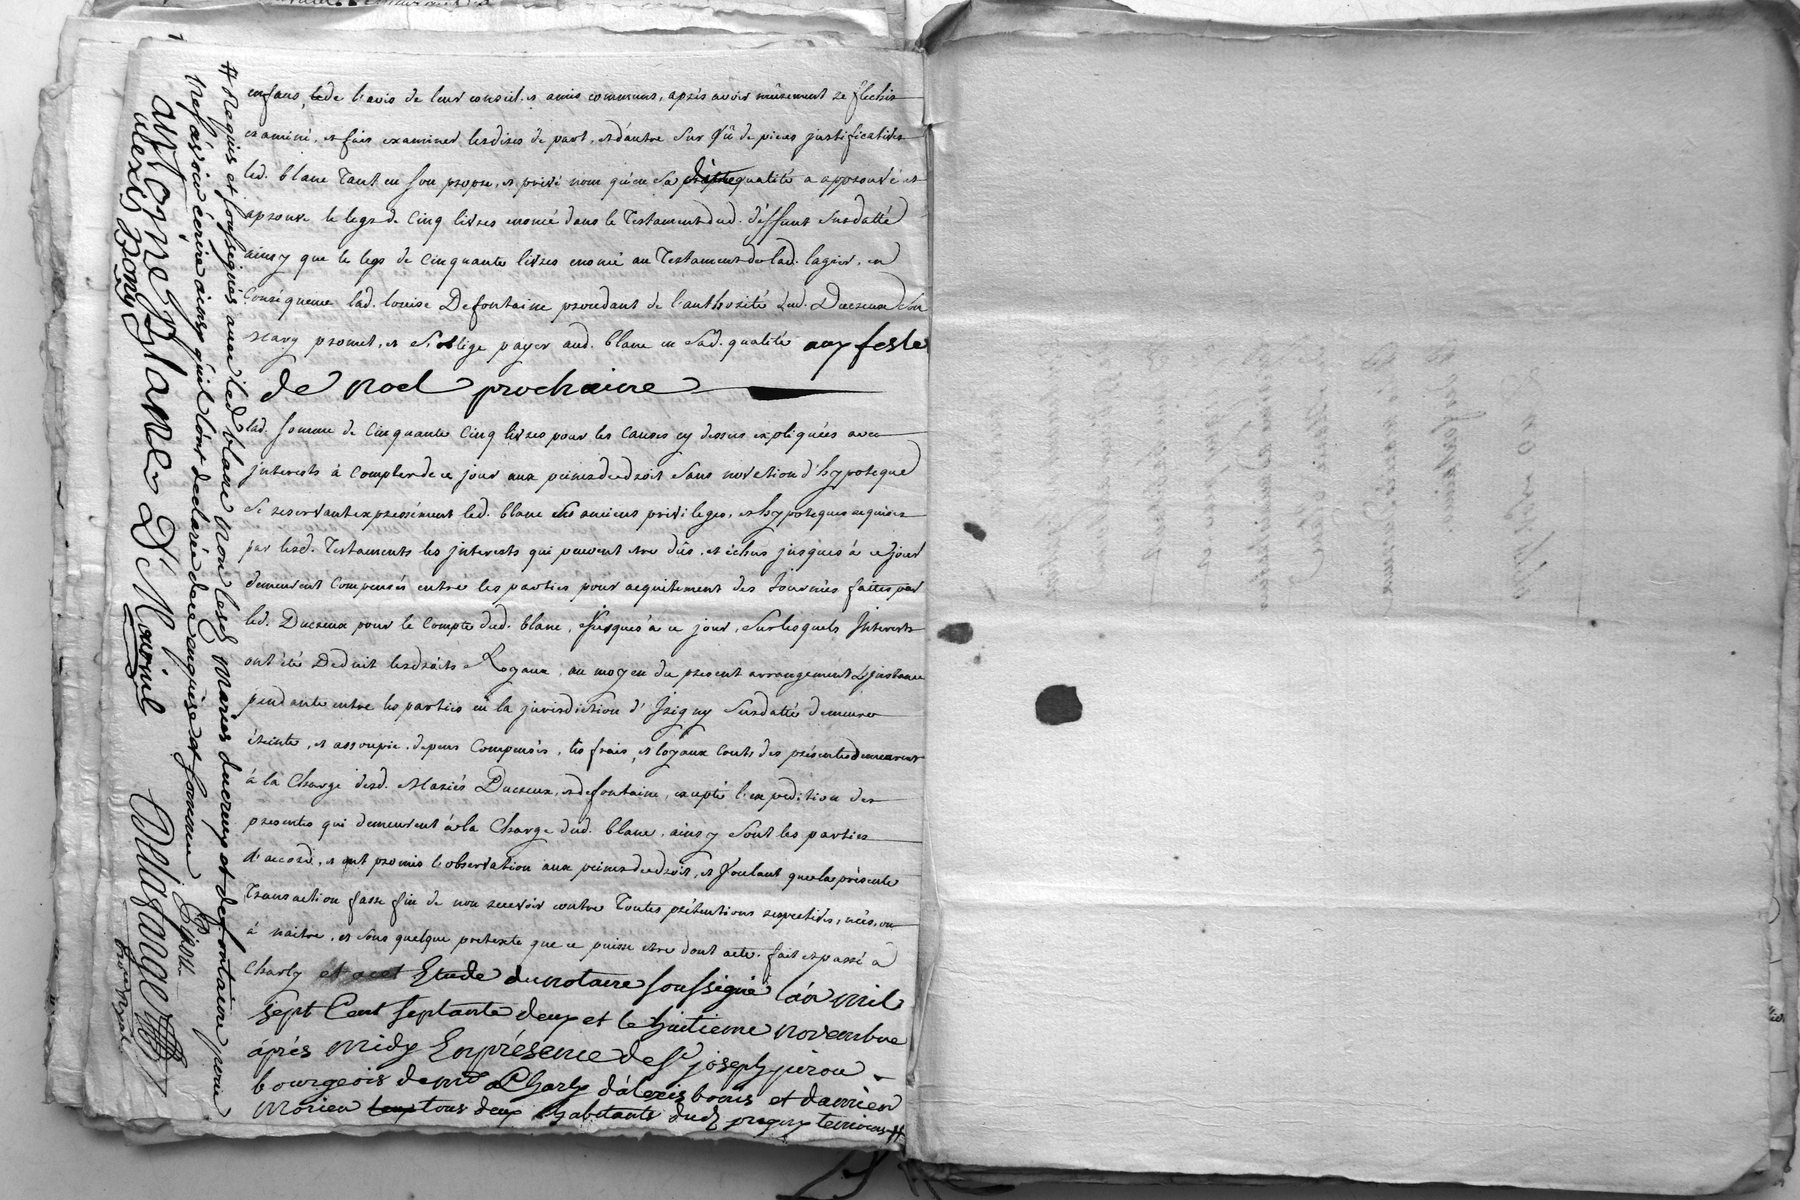 enfans, de l'avis de leur conseil et amis communs, après avoir mûrement refléchis
examiné, et fait examiner lesdires de part, et d'autre sur vû de pieces justificatives
led. blanc tant en son propre, et privé nom qu'en sa ditte qualité a approuvé et
aprouve le legs de cinq livres enoncé dans le Testament dud. déffunt susdatté
ainsy que le legs de cinquante livres enoncé au Testament de lad. lagier, en
Conséquence lad. louise Defontaine procedant de l'authorité dud. Ducreux son
mary promet, et s'oblige payer aud. blanc en sad. qualité aux feste
de noel prochaine
lad. somme de cinquante cinq livres pour les causes cy dessus expliquées avec
jnterests à compter de ce jour aux peines de droit sans novation d'hypoteque
se reservant expressément led. blanc ses anciens privileges, et hypoteques acquises
par lesd. Testaments les jnterests qui peuvent etre dûs, et échus jusques à ce jour
demeurent compensés entre les parties pour acquitement des journées faites par
led. Ducreux pour le compte dud. blanc, jusques à ce jour, sur lesquels jnterests
ont été Deduit lesdroits Royaux, au moyen du present arrangement l'jnstance
pendante entre les parties en la jurisdiction d'Jzigny susdattée demeure
éteinte, et assoupie, depens compensés, les frais, et loyaux couts des présentes demeurent
à la charge desd. Mariés Ducreux, et defontaine, excepté l'expedition des
presentes qui demeurent à la charge dud. blanc, ainsy sont les parties
d'accord, et ont promis l'observation aux peines de droit, et voulant que la présente
Transaction fasse fin de non recevoir contre toutes prétentions respectives, nées, ou
à naitre, et sous quelque pretexte que ce puisse etre dont acte. fait et passé a
Charly Etude du notaire soussigné l'an mil
sept Cent septante deux et le huitieme novembre
áprés midy En présence de Sr joseph pirou
bourgeois de Charly d'alexis bonis et damien
morieu tous deux habitants dud. temoins #
# Requis et soussignés avec led blanc non lesd mariés ducreux et defontaine pour
ne sçavoir écrire ainsy qu'il l'ont declaré de ce enquis et sommé
antoine Blanc D. Mourieu
alexis bony
Pirou
Delafarge